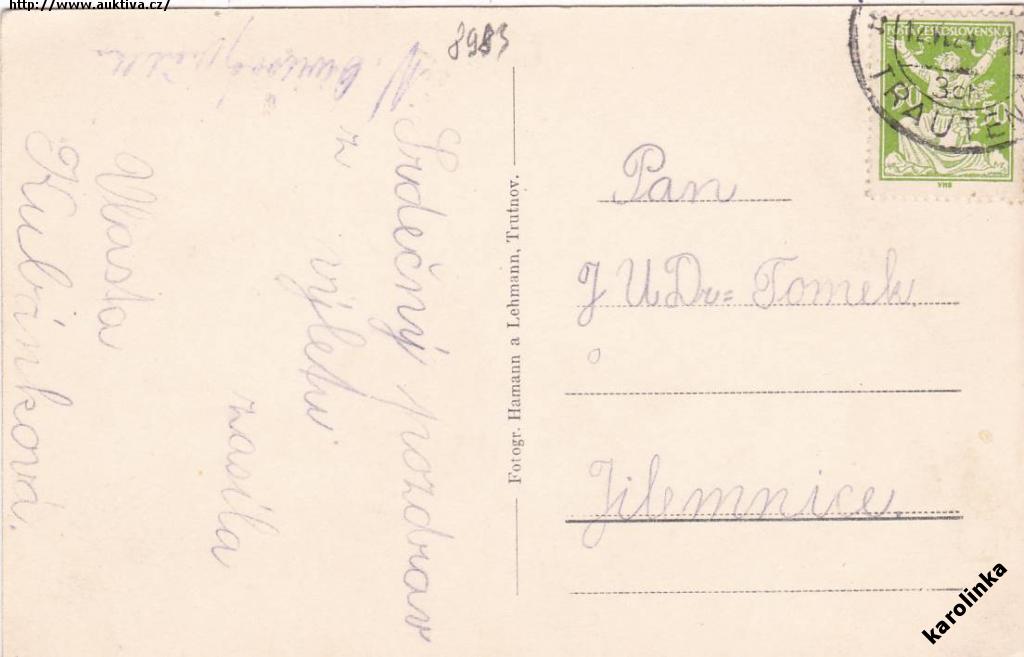 http://www.auktiva.cz/
8983
Srdečný pozdrav
z výletu
zasílá
Vlasta
Kubánková.
Fotogr. Hamann a Lehmann, Trutnov.
POŠTA ČESKOSLOVENSKÁ
50 50
TRAUTEN
Pan
JUDr= Tomek
Jilemnice.
karolinka